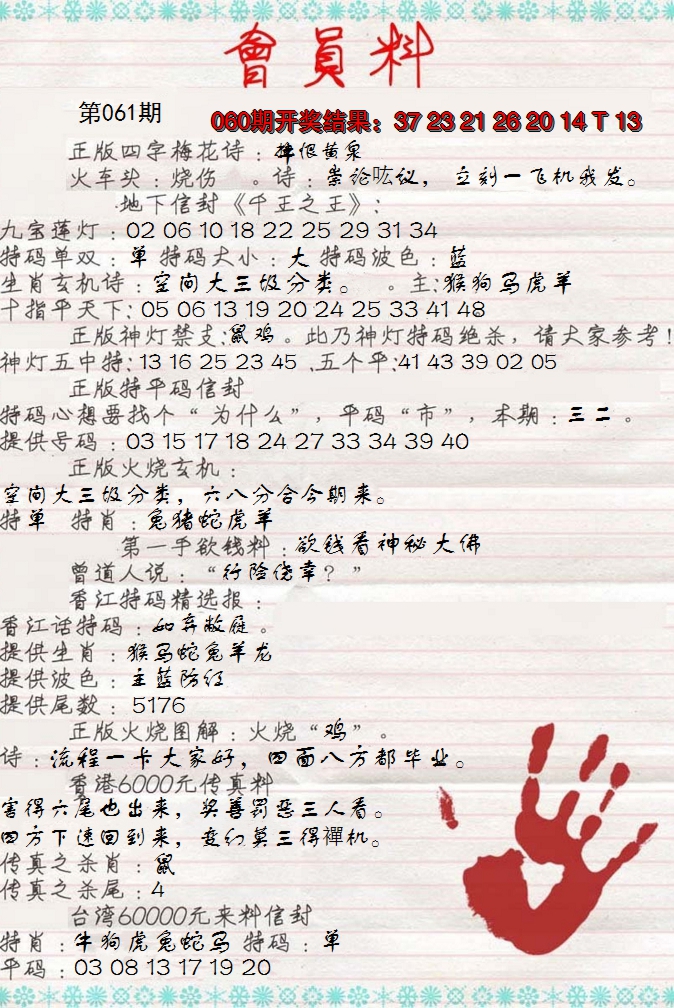 會員料
第061期
060期开奖结果：37 23 21 26 20 14 T 13
正版四字梅花诗：抱恨黄泉
火车头：烧伤 。诗：崇论吰议，立刻一飞机我发。
地下信封《千王之王》：
九宝莲灯：02 06 10 18 22 25 29 31 34
特码单双：单 特码大小：大 特码波色：蓝
生肖玄机诗：空间大三级分类。 。主:猴狗马虎羊
十指平天下: 05 06 13 19 20 24 25 33 41 48
正版神灯禁支:鼠鸡。此乃神灯特码绝杀，请大家参考!
神灯五中特:13 16 25 23 45 .五个平:41 43 39 02 05
正版特平码信封
特码心想要找个“为什么”，平码“市”，本期：三二。
提供号码：03 15 17 18 24 27 33 34 39 40
正版火烧玄机：
空间大三级分类，六八分合今期来。
特单 特肖：兔猪蛇虎羊
第一手欲钱料：欲钱看神秘大佛
曾道人说：“行险侥幸？”
香江特码精选报：
香江话特码：如弃敝屣。
提供生肖：猴马蛇兔羊龙
提供波色：主蓝防红
提供尾数：5176
正版火烧图解：火烧“鸡”。
诗：流程一卡大家好，四面八方都毕业。
香港6000元传真料
害得六尾也出来，奖善罚恶三人看。
四方下速回到来，变幻莫三得禪机。
传真之杀肖：鼠
传真之杀尾：4
台湾60000元来料信封
特肖：牛狗虎兔蛇马 特码：单
平码：03 08 13 17 19 20